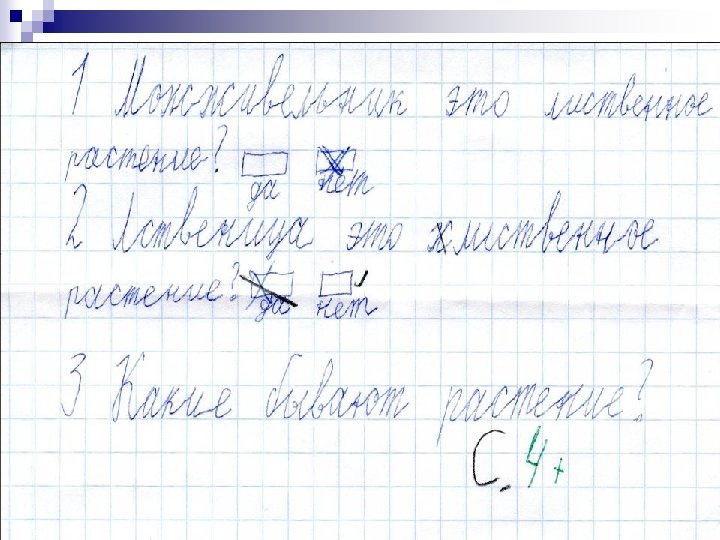 1 Можживельник это лиственное
растение? да нет
2 Лственица это хлиственное
растение? да нет
3 Какие бывают растение?
С. 4+